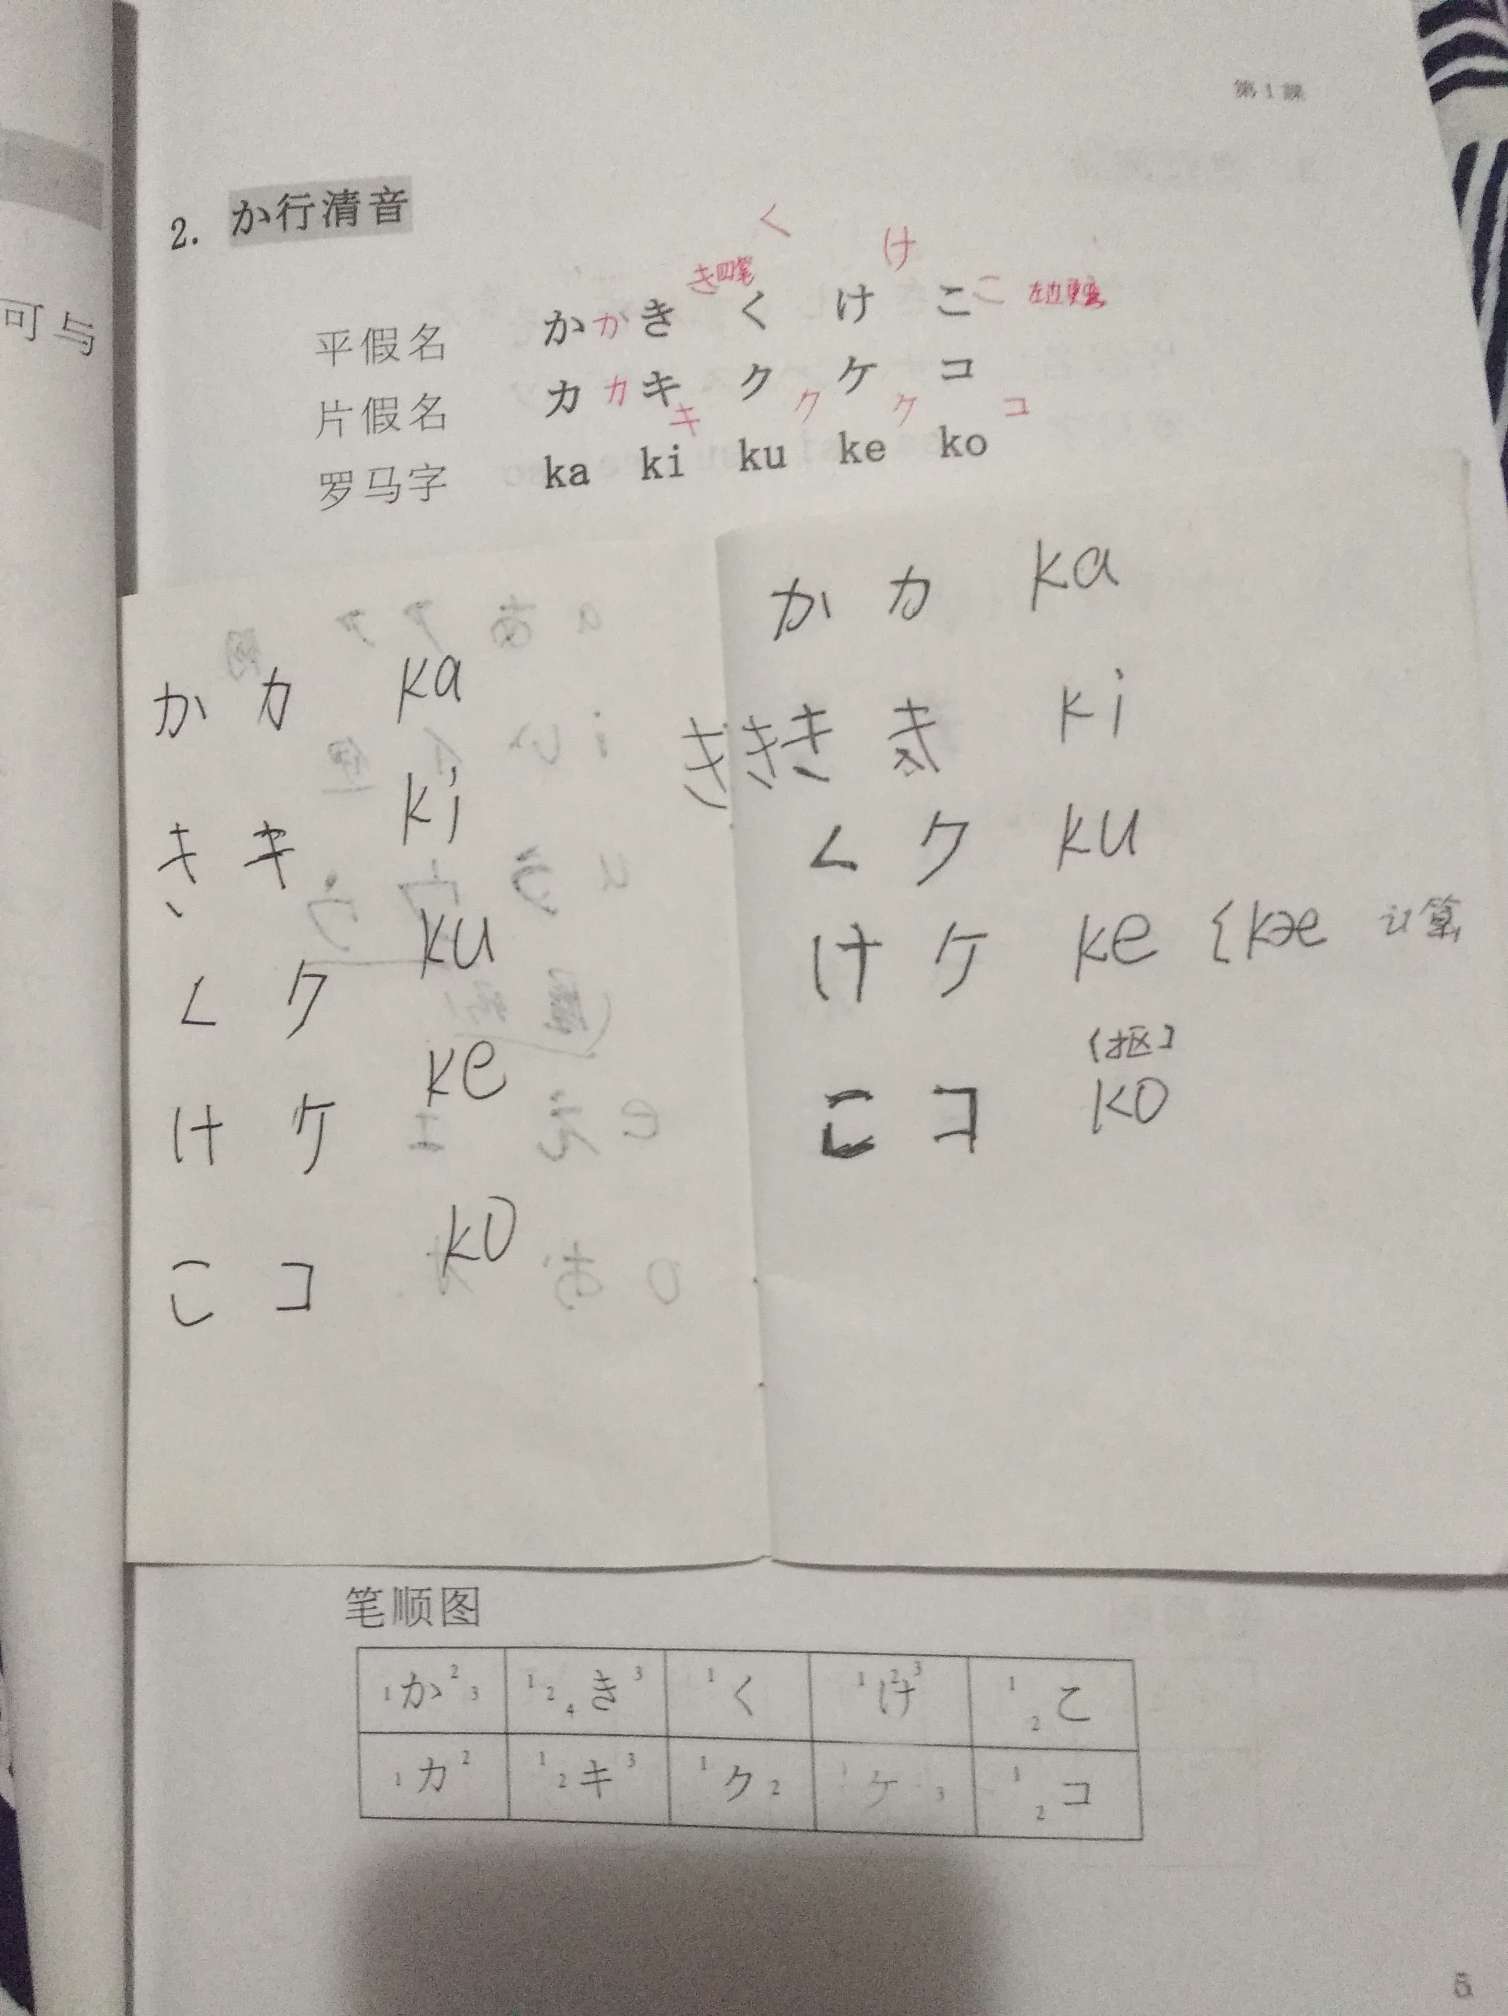 第1課
可与
2. か行清音
く け
き四笔 こ
平假名 か か き く け こ
片假名 カ カ キ キ ク ク ケ ケ コ コ
罗马字 ka ki ku ke ko
か カ ka
き キ ki
く ク ku
け ケ ke
こ コ ko
か カ ka
き き き ki
く ク ku
け ケ ke {kae 计算
[抠]
こ コ ko
笔顺图
1 か 2 3 1 2 4 き 3 1 く 1 け 2 3 1 2 こ
1 カ 2 1 2 キ 3 1 ク 2 1 ケ 3 1 2 コ
5